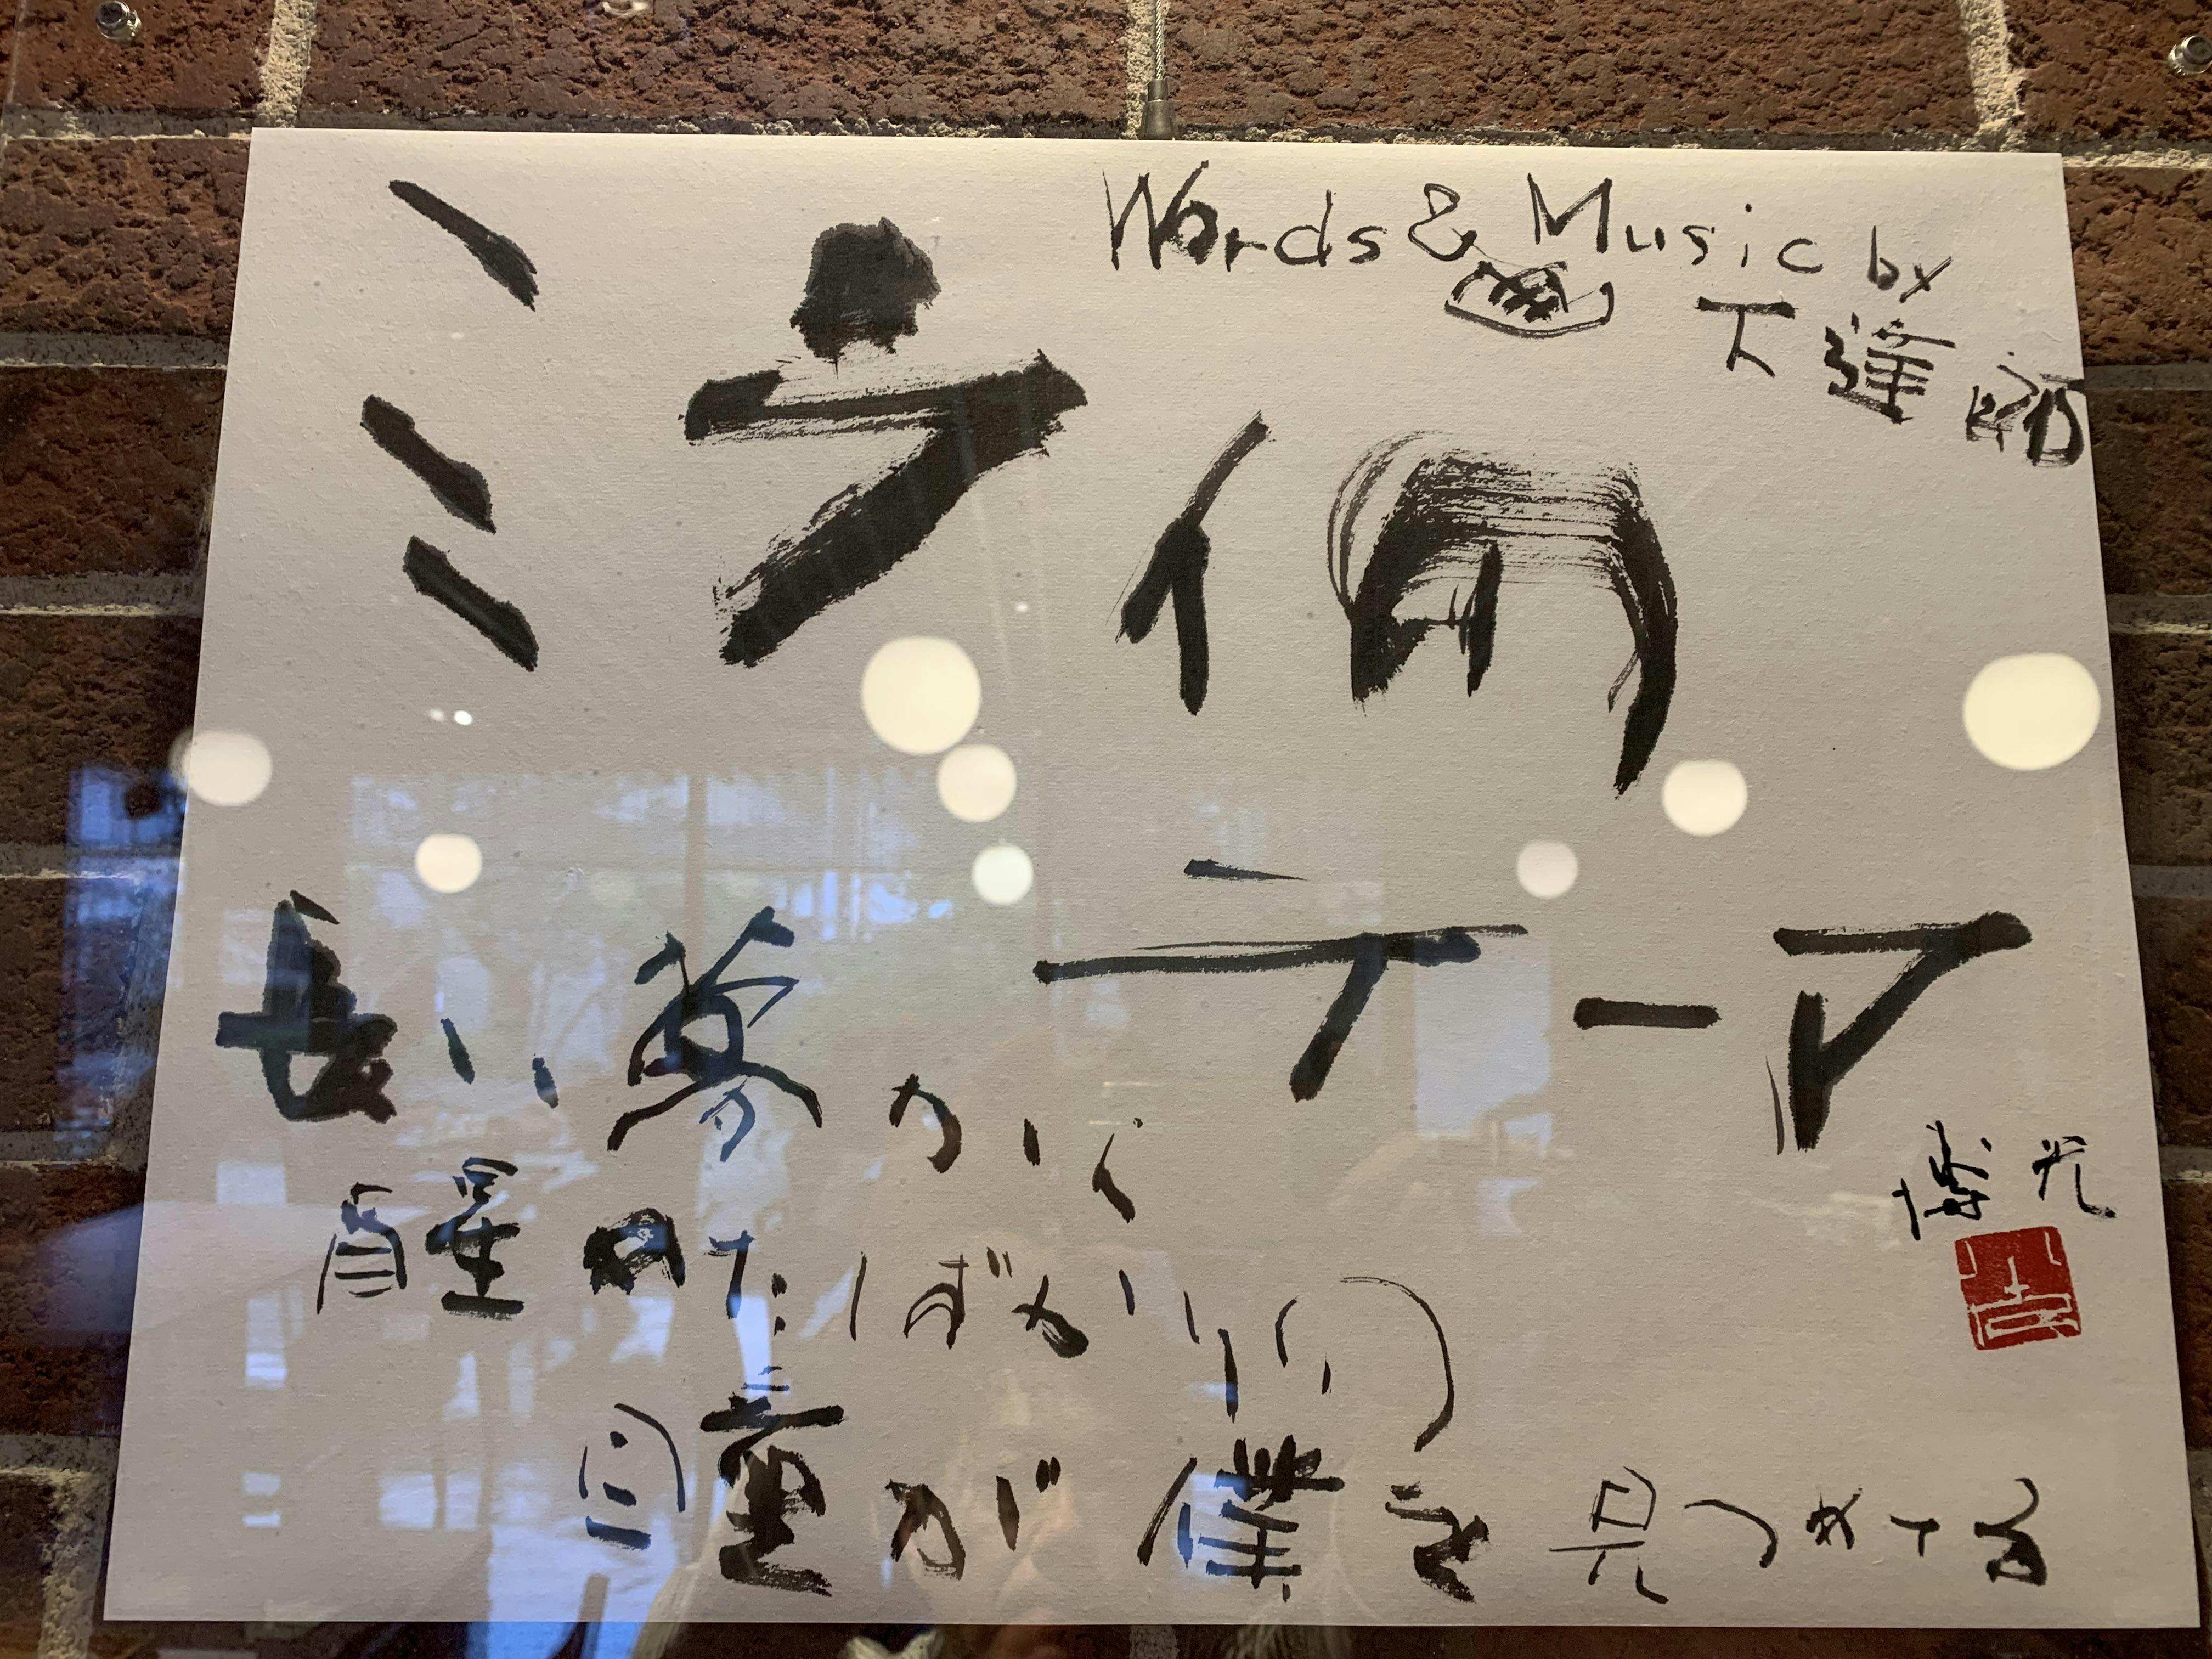 Words & Music by
山下達郎
ミライの
テーマ
長い夢から
醒めたばかりの
瞳が僕を見つめてる
博光